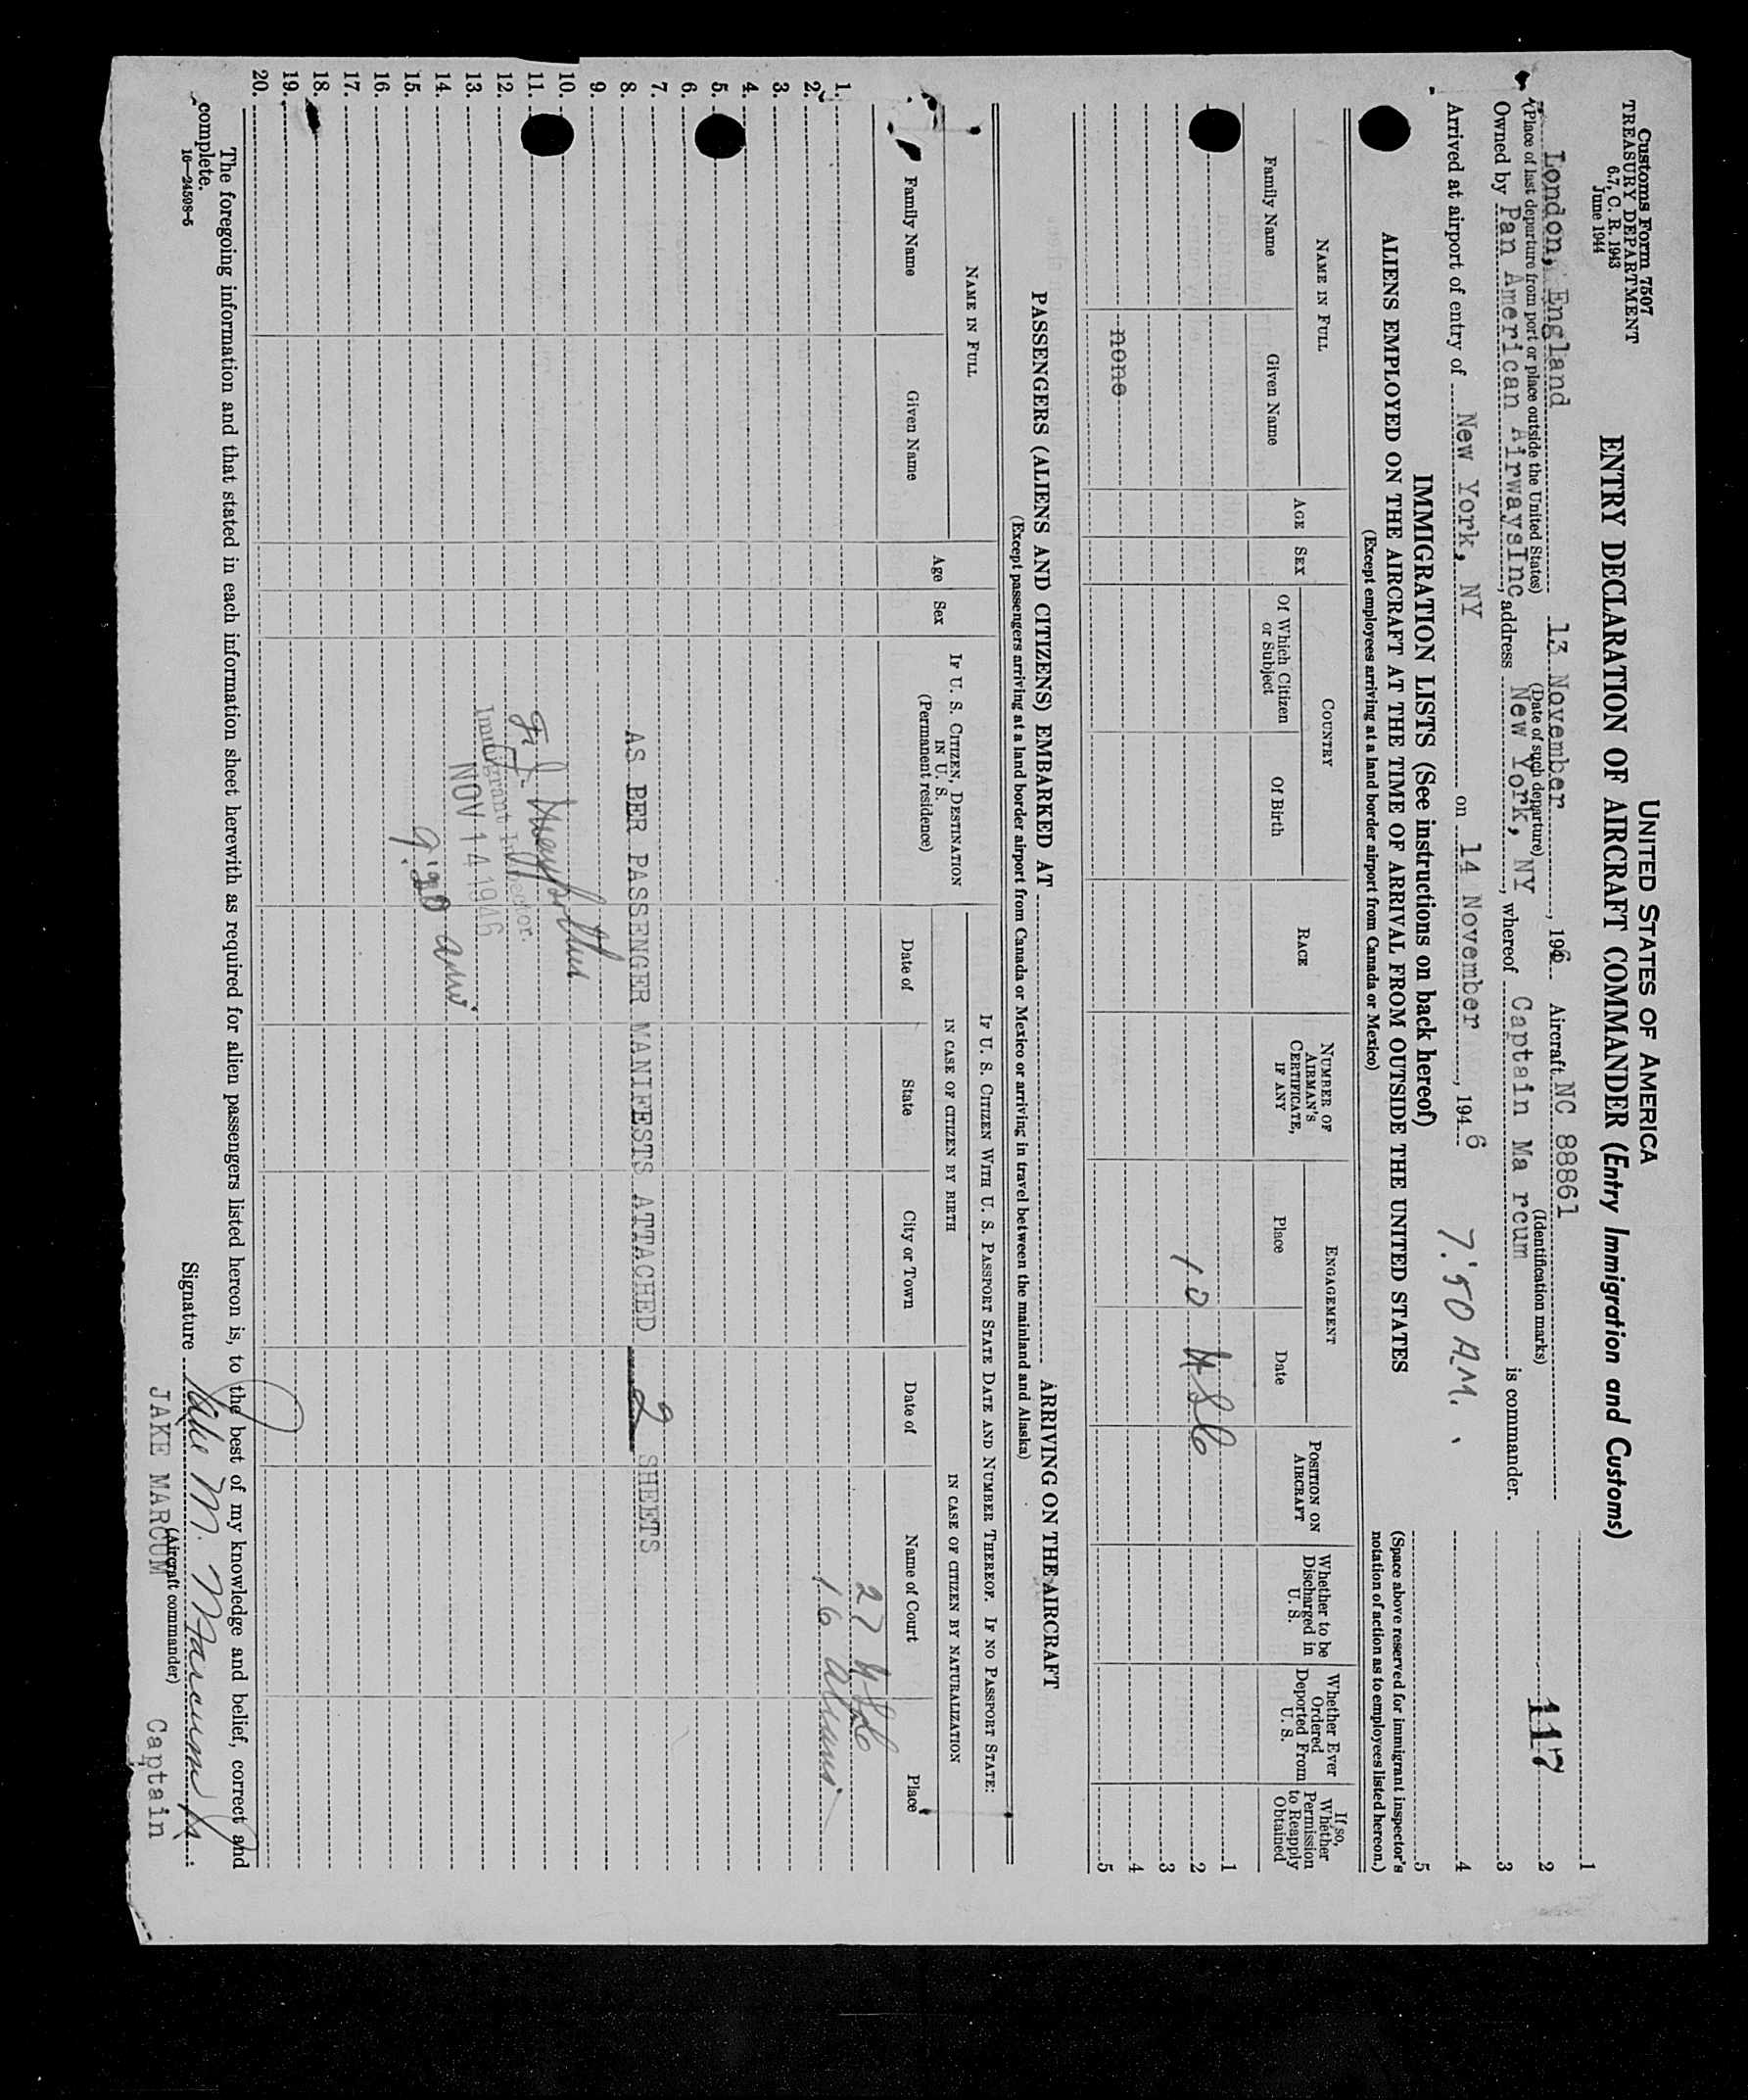 Customs Form 7507
TREASURY DEPARTMENT
6.7, C. R. 1943
June 1944
UNITED STATES OF AMERICA
ENTRY DECLARATION OF AIRCRAFT COMMANDER (Entry Immigration and Customs)
London, England 13 November, 1946 Aircraft NC 88861
(Place of last departure from port or place outside the United States) (Date of such departure) (Identification marks)
Owned by Pan American AirwaysInc, address New York, NY, whereof Captain Ma rcum is commander.
Arrived at airport of entry of New York, NY on 14 November, 1946 7:50 A.M.
1
2
117
3
4
5
(Space above reserved for immigrant inspector's notation of action as to employees listed hereon.)
IMMIGRATION LISTS (See instructions on back hereof)
ALIENS EMPLOYED ON THE AIRCRAFT AT THE TIME OF ARRIVAL FROM OUTSIDE THE UNITED STATES
(Except employees arriving at a land border airport from Canada or Mexico)
NAME IN FULL
Family Name
Given Name
AGE
SEX
COUNTRY
Of Which Citizen or Subject
Of Birth
RACE
NUMBER OF AIRMAN'S CERTIFICATE, IF ANY
ENGAGEMENT
Place
Date
POSITION ON AIRCRAFT
Whether to be Discharged in U. S.
Whether Ever Ordered Deported From U. S.
If so, Whether Permission to Reapply Obtained
1
10 USC 2
3
none 4
5
PASSENGERS (ALIENS AND CITIZENS) EMBARKED AT ARRIVING ON THE AIRCRAFT
(Except passengers arriving at a land border airport from Canada or Mexico or arriving in travel between the mainland and Alaska)
NAME IN FULL
Family Name
Given Name
Age
Sex
IF U. S. CITIZEN, DESTINATION IN U. S.
(Permanent residence)
IF U. S. CITIZEN WITH U. S. PASSPORT STATE DATE AND NUMBER THEREOF. IF NO PASSPORT STATE:
IN CASE OF CITIZEN BY BIRTH
Date of
State
City or Town
IN CASE OF CITIZEN BY NATURALIZATION
Date of
Name of Court
Place
1. 27 USC
2. 16 Aliens
3.
4.
5.
6.
7.
8. AS PER PASSENGER MANIFESTS ATTACHED 2 SHEETS
9.
10.
11.
12. Immigrant Inspector.
13. NOV 14 1946
14.
15. 9:20 am.
16.
17.
18.
19.
20.
The foregoing information and that stated in each information sheet herewith as required for alien passengers listed hereon is, to the best of my knowledge and belief, correct and
complete.
16—24598-5
Signature Jake M. Marcum Jr.
(Aircraft commander)
JAKE MARCUM Captain